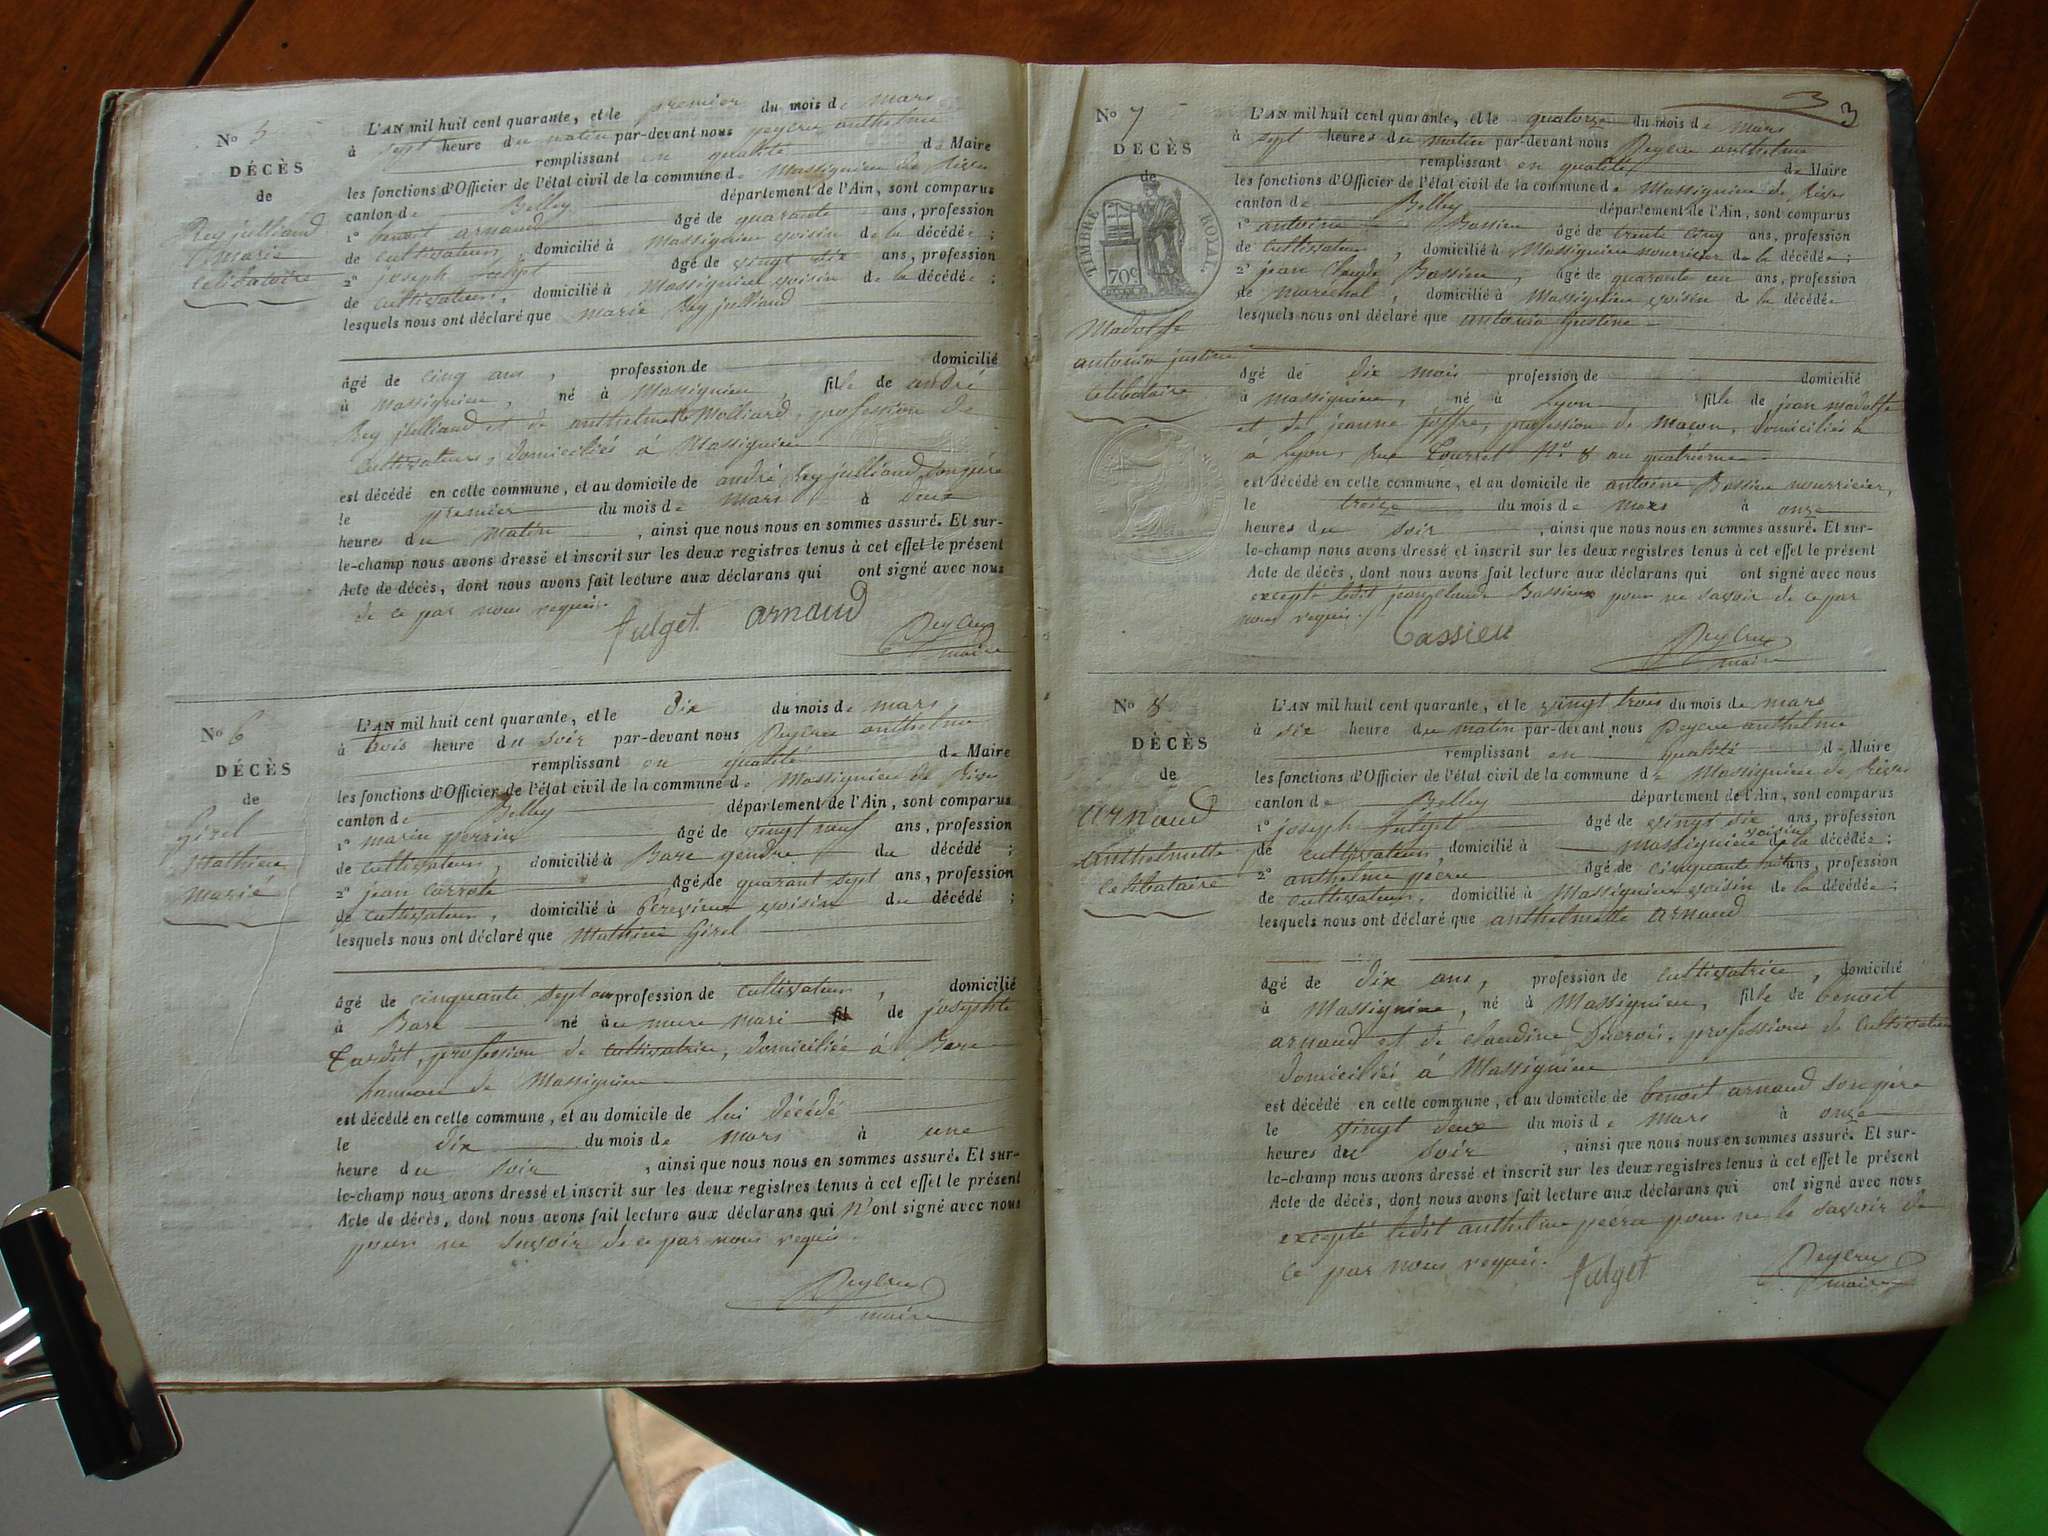 No 5
DÉCÈS
de
Rey julliand
Marie
Celibataire
L'AN mil huit cent quarante, et le premier du mois de mars
à sept heure du matin par-devant nous peycru anthelme
remplissant en qualité de Maire
les fonctions d'Officier de l'état civil de la commune de Massignieu de Rives
canton de Belley département de l'Ain, sont comparus
1º benoit arnaud âgé de quarante ans, profession
de cultivateur, domicilié à Massignieu voisin de la décédée ;
2º joseph fulget âgé de vingt six ans, profession
de cultivateur, domicilié à Massignieu voisin de la décédée ;
lesquels nous ont déclaré que marie Rey julliand
âgé de cinq ans, profession de domicilié
à massignieu, né à Massignieu fille de andré
Rey julliand et de anthelmette Molliard, profession de
Cultivateurs, domiciliés à Massignieu
est décédé en cette commune, et au domicile de andré Rey julliand son père
le premier du mois de mars à deux
heures du matin, ainsi que nous nous en sommes assuré. Et sur-
le-champ nous avons dressé et inscrit sur les deux registres tenus à cet effet le présent
Acte de décès, dont nous avons fait lecture aux déclarans qui ont signé avec nous
de ce par nous requis.
fulget arnaud Peycru
maire
No 6
DÉCÈS
de
Girel
Mathieu
Marié
L'AN mil huit cent quarante, et le dix du mois de mars
à trois heure du soir par-devant nous Peycru anthelme
remplissant en qualité de Maire
les fonctions d'Officier de l'état civil de la commune de Massignieu de Rives
canton de Belley département de l'Ain, sont comparus
1º marin perrin âgé de vingt neuf ans, profession
de cultivateur, domicilié à Bare gendre du décédé ;
2º jean carrote âgé de quarant sept ans, profession
de cultivateur, domicilié à voisin du décédé ;
lesquels nous ont déclaré que Mathieu Girel
âgé de cinquante sept ans profession de cultivateur, domicilié
à Bare né à mari de josephte
Cardit, profession de cultivatrice, domiciliée à Bare
hameau de Massignieu
est décédé en cette commune, et au domicile de lui décédé
le dix du mois de mars à une
heure du soir, ainsi que nous nous en sommes assuré. Et sur-
le-champ nous avons dressé et inscrit sur les deux registres tenus à cet effet le présent
Acte de décès, dont nous avons fait lecture aux déclarans qui n'ont signé avec nous
pour ne savoir de ce par nous requis.
Peycru
maire
3 3
No 7
DÉCÈS
de
TIMBRE ROYAL
70c
Madolfe
antonia justine
Celibataire
L'AN mil huit cent quarante, et le quatorze du mois de mars
à sept heures du matin par-devant nous Peycru anthelme
remplissant en qualité de Maire
les fonctions d'Officier de l'état civil de la commune de Massignieu de Rives
canton de Belley département de l'Ain, sont comparus
1º antoine Bassieu âgé de trente cinq ans, profession
de cultivateur, domicilié à Massignieu nourricier de la décédée ;
2º jean Claude Bassieu, âgé de quarante un ans, profession
de maréchal, domicilié à Massignieu voisin de la décédée
lesquels nous ont déclaré que antonia justine
âgé de dix mois profession de domicilié
à massignieu, né à Lyon fille de jean madolfe
et de jeanne joffre, profession de maçon, domiciliés à
à Lyon, Rue Tourret Nº 8 au quatrième
est décédé en cette commune, et au domicile de antoine Bassieu nourricier,
le treize du mois de mars à onze
heures du soir, ainsi que nous nous en sommes assuré. Et sur-
le-champ nous avons dressé et inscrit sur les deux registres tenus à cet effet le présent
Acte de décès, dont nous avons fait lecture aux déclarans qui ont signé avec nous
excepté ledit jean claude Bassieu pour ne savoir de ce par
nous requis.
Cassieu Peycru
maire
No 8
DÉCÈS
de
arnaud
Anthelmette
Celibataire
L'AN mil huit cent quarante, et le vingt trois du mois de mars
à six heure du matin par-devant nous Peycru anthelme
remplissant en qualité de Maire
les fonctions d'Officier de l'état civil de la commune de Massignieu de Rives
canton de Belley département de l'Ain, sont comparus
1º joseph fulget âgé de vingt six ans, profession
de cultivateur, domicilié à massignieu voisin de la décédée ;
2º anthelme pécru âgé de cinquante huit ans, profession
de cultivateur, domicilié à Massignieu voisin de la décédée ;
lesquels nous ont déclaré que anthelmette arnaud
âgé de dix ans, profession de cultivatrice, domicilié
à Massignieu, né à Massignieu, fille de benoit
arnaud et de claudine Ducrois, professions de cultivateurs
domiciliés à Massignieu
est décédé en cette commune, et au domicile de benoit arnaud son père
le vingt deux du mois de mars à onze
heures du soir, ainsi que nous nous en sommes assuré. Et sur-
le-champ nous avons dressé et inscrit sur les deux registres tenus à cet effet le présent
Acte de décès, dont nous avons fait lecture aux déclarans qui ont signé avec nous
excepté ledit anthelme pécru pour ne le savoir de
ce par nous requis. fulget Peycru
maire